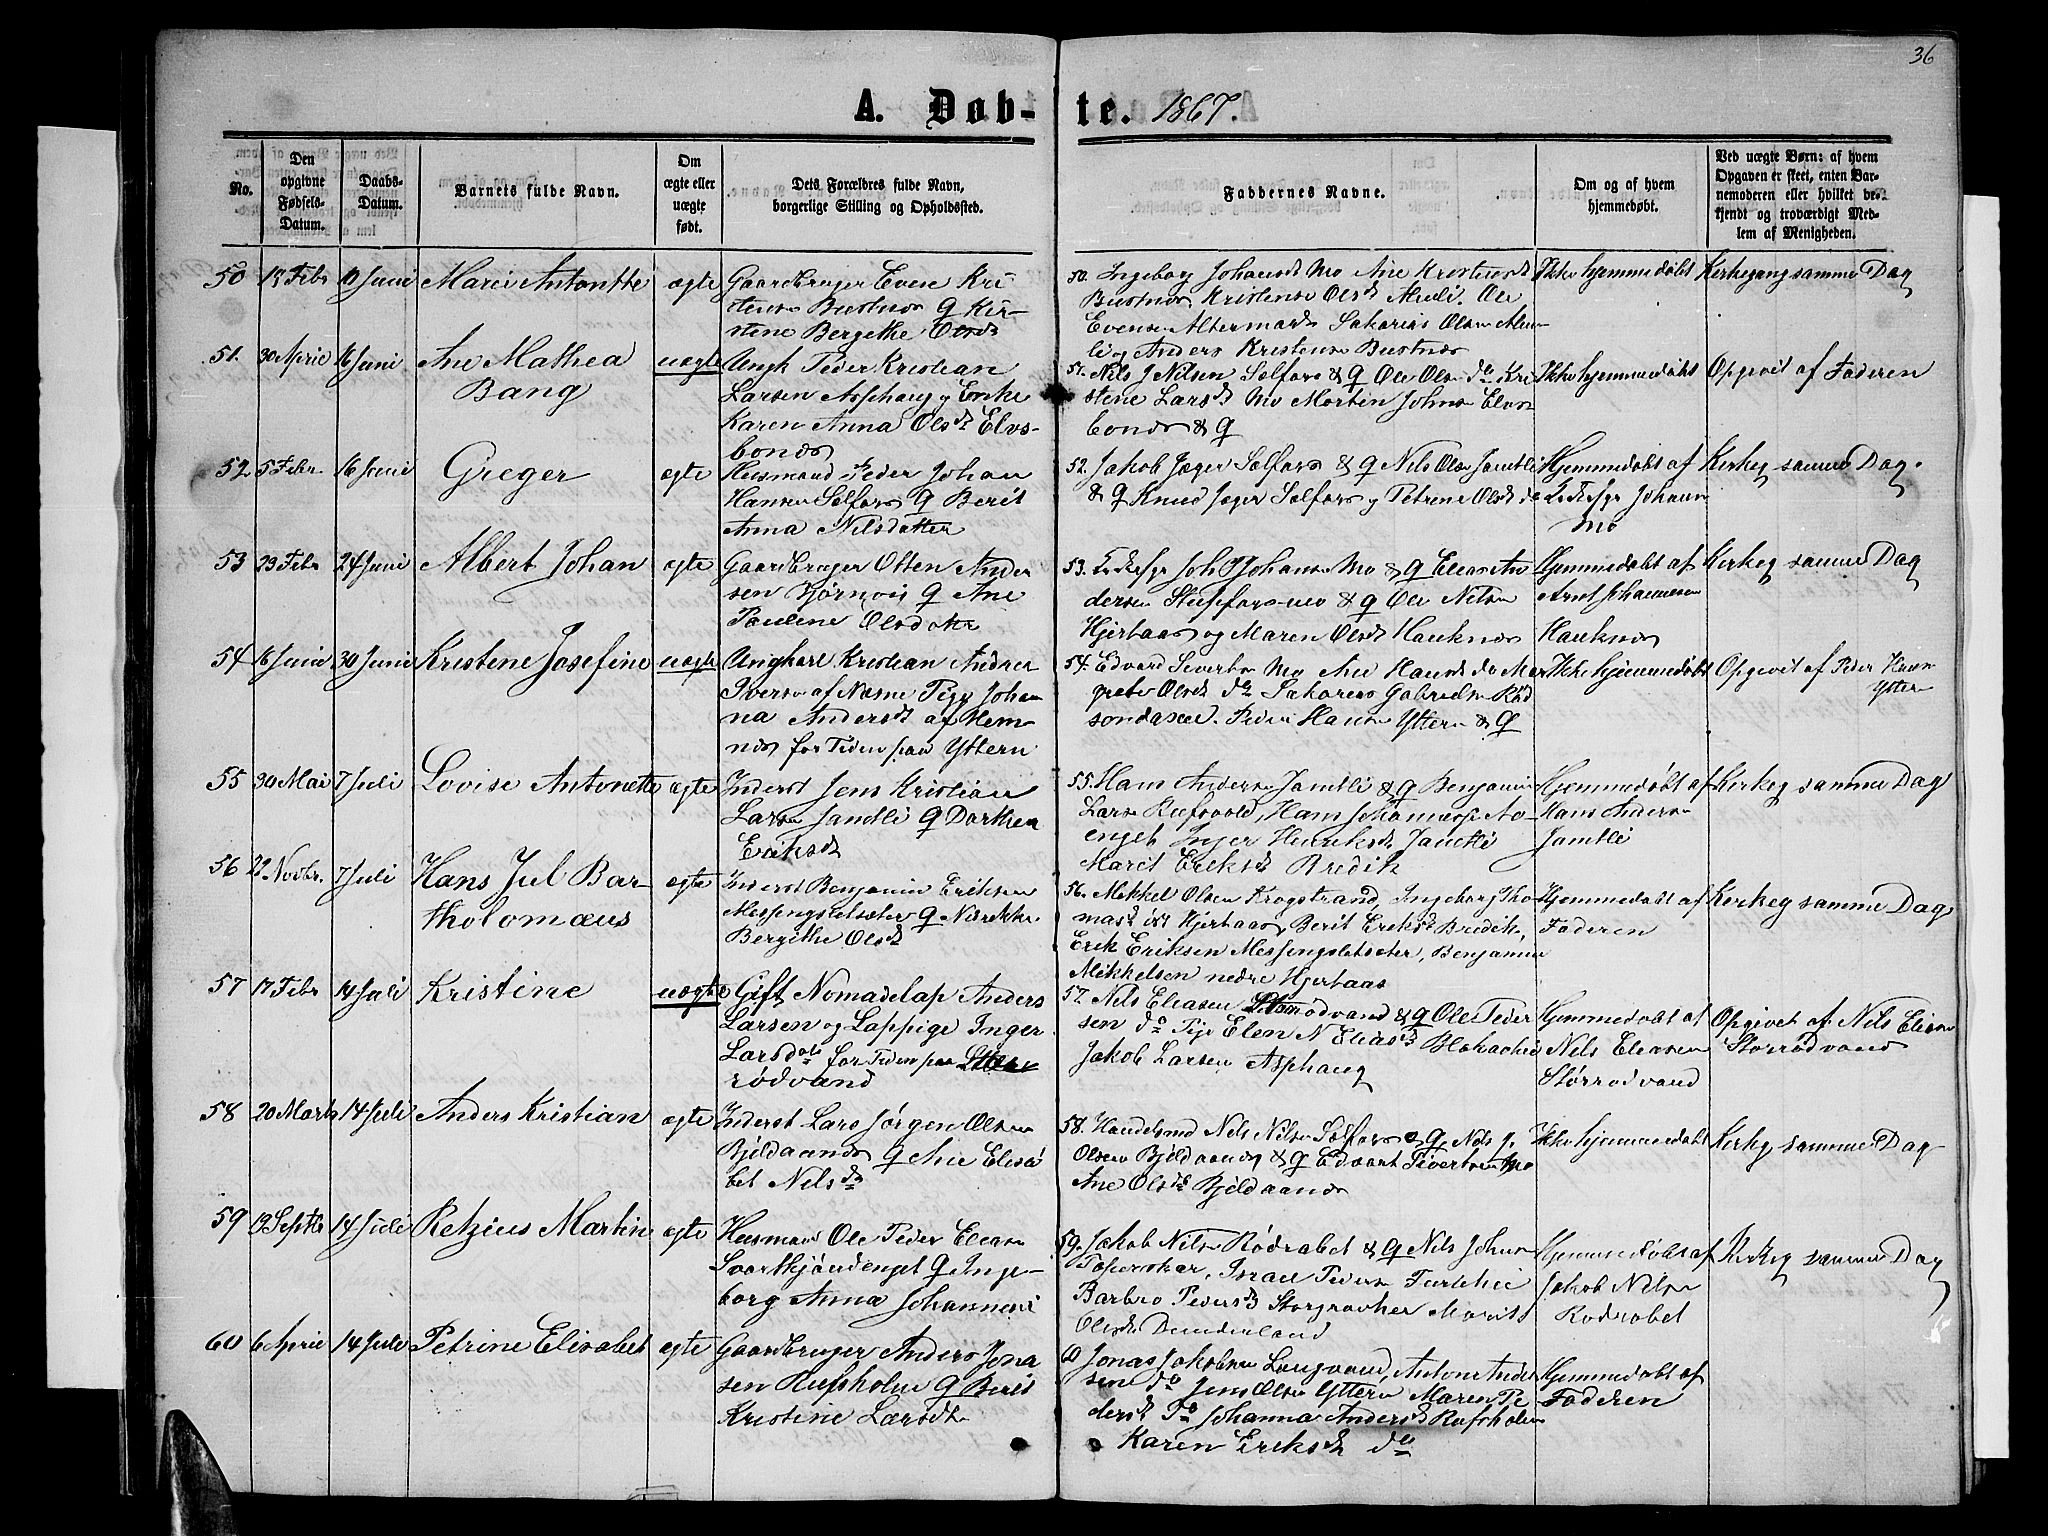 36
A. Døb- te. 1867.
No.
Den opgivne Fødsels-Datum.
Daabs-Datum.
Barnets fulde Navn.
Om ægte eller uægte født.
Dets Forældres fulde Navn, borgerlige Stilling og Opholdssted.
Faddernes Navne.
Om og af hvem hjemmedøbt.
Ved uægte Børn: af hvem Opgaven er skeet, enten Barnemoderen eller hvilket bekjendt og troværdigt Medlem af Menigheden.
50 Febr Juni Marie Antonette ægte Gaardbruger Even Kri-
stensen Bustnæs Q Kir-
stine Bergithe Olsdr
50. Ingeborg Johansd Mo Ane Kristensd
Bustnæs Kristense Olsd Ole
Evensen Altermark Sakarias Olsen
Anders Kristensen Bustnæs
Ikke hjemmedøbt Kirkegang samme Dag
51. 30 April 16 Juni Ane Mathea
Bang
uægte Ungk Peder Kristian
Larsen Asphaug og Enke
Karen Anna Olsdr Elvs-
bonæs
51. Nils J Nilsen Selfors & Q Ole Olsen do Kri
stine Larsd Mo Morten Johns Elvs
bonæs & Q
Ikke hjemmedøbt Opgevet af Faderen
52. 5 Febr. 16 Juni Greger ægte Husmand Peder Johan
Hansen Selfors Q Berit
Anna Nilsdatter
52. Jakob Jæger Selfors & Q Nils Olsen Jamtli
& Q Knud Jæger Selfors og Petrine Olsd do
Hjemmedøbt af
Johansen
Mo
Kirkeg samme Dag.
53 23 Febr 24 Juni Albert Johan ægte Gaardbruger Otten Ander
sen Q Ane
Pauline Olsdatter
53. Joh Johansen Mo & Q Elias An
dersen & Q Ole Nilsen
Hjertaas og Maren Olsd Hauknæs
Hjemmedøbt af
Arnt Johannesen
Hauknæs
Kirkeg samme Dag
54 16 Juni 30 Juni Kristine Josefine uægte Ungkarl Kristian Andreas
Iversen af Næsne Pige Joha
na Andersdr af Hem-
næs for Tiden paa Yttern
54. Edvard Sivertsen Mo Ane Hansd do Mar
grete Olsd do Sakarias Gabrielsen Rød
sondaxel. Peder Hansen Yttern & Q
Ikke hjemmedøbt Opgevet af Peder Hansen
Yttern
55 30 Mai 7 Juli Lovise Antonette ægte Inderst Jens Kristian
Larsen Jamtli Q Dorthea
Eriksdr
55. Hans Andersen Jamtli & Q Benjamin
Larsen Hans
enget Inger Henriksd Jamtli
Marit Eriksd Bredik
Hjemmedøbt af
Hans Andersen
Jamtli
Kirkeg samme Dag
56 22 Novbr. 7 Juli Hans Jul Bar-
tholomæus
ægte Inderst Benjamin Eriksen
Messingsletsæter Q
Bergithe Olsdr
56. Mikkel Olsen Krogstrand, Ingeborg Tho
masd Hjertaas, Berit Eriksd Bredik,
Erik Eriksen Messingsletsæter, Benjamin
Mikkelsen nedre Hjertaas
Hjemmedøbt af
Faderen
Kirkeg samme Dag
57 17 Febr 14 Juli Kristine uægte Gift Nomadelap Anders
Larsen og Lappige Inger
Larsdatr for Tiden paa Store
rødvand
57. Nils Eliasen Storrødvand & Q Ole Peder
sen do Pige Elen N Eliasd
Jakob Larsen Asphaug
Hjemmedøbt af
Nils Eliasen
Størrødvand
Opgivet af Nils Eliasen
Storrødvand
58 20 Marts 14 Juli Anders Kristian ægte Inderst Lars Jørgen Olsen
Bjeldaanæs Q Ane Elisa
bet Nilsdr
58. Handelsmd Nils Nilsen Selfors & Q, Nils J.
Olsen Bjeldaanæs & Q Edvart Sivertsen Mo
Ane Olsd Bjeldaanæs
Ikke hjemmedøbt Kirkeg samme Dag
59 Septbr 14 Juli Retzius Martin ægte Husmand Ole Peder Eliasen
Svarthjøndenget Q Inge-
borg Anna Johannesd
59. Jakob Nilsen Rødrabet & Q Nils Johnsen
Toperskar, Israel Pedersen
Barbro Pedersd Marits
Olsd Dunderland
Hjemmedøbt af
Jakob Nilsen
Rødrabet
Kirkeg samme Dag
60 6 April 14 Juli Petrine Elisabet ægte Gaardbruger Anders Jona
sen Rufsholm Q Berit
Kristine Larsdr
60 Jonas Jakobsen Langvand, Anton Andersen
do Jens Olsen Yttern Maren Pe
dersd Johanna Andersd Rufsholm
Karen Eriksd do
Hjemmedøbt af
Faderen